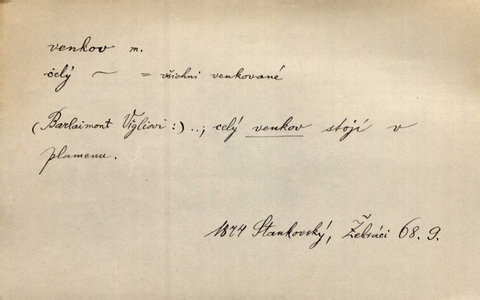 venkov m.
celý ~ = všichni venkované
(Barlaimont Vigliovi:)..; celý venkov stojí v
plamenu.
1874 Stankovský, Žebráci 68. 9.